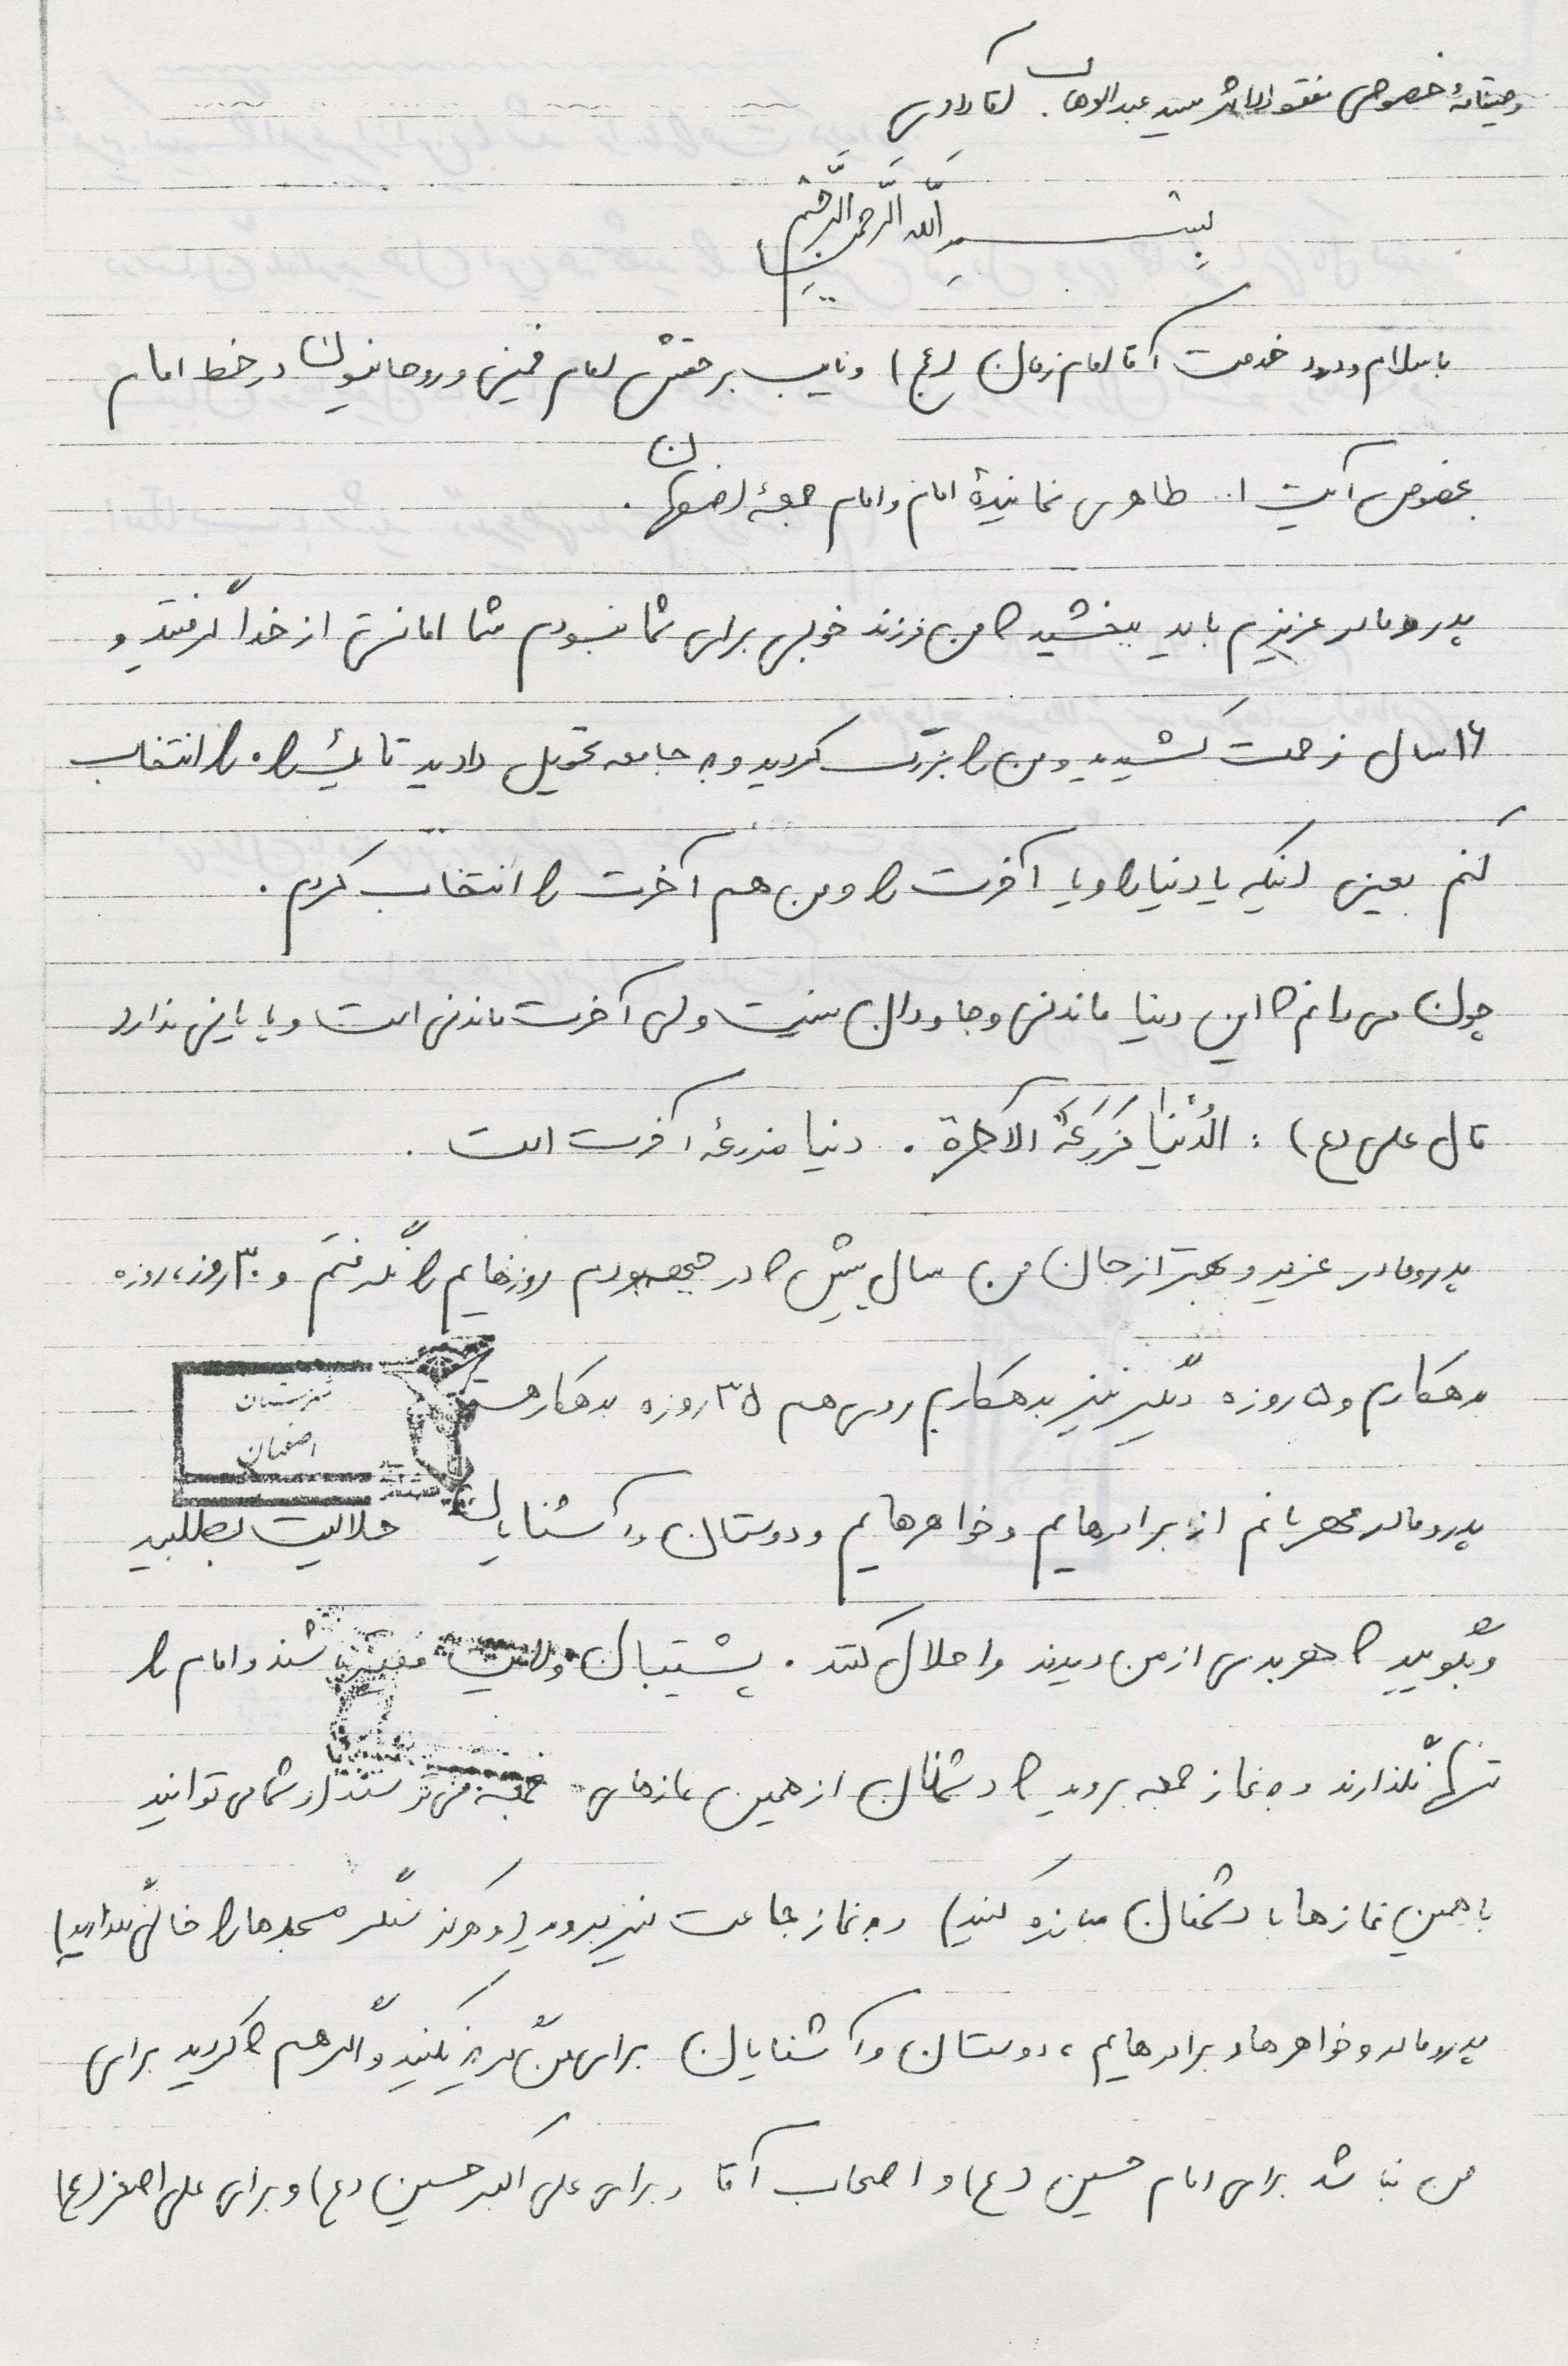 وصیتنامهٔ خصوصی مفقودالاثر سید عبدالوهاب
بِسْمِ اللَّهِ الرَّحْمنِ الرَّحیمِ
با سلام و درود خدمت آقا امام زمان (عج) و نایب برحقش امام خمینی و روحانیون در خط امام
بخصوص آیت ا.. طاهری نمایندهٔ امام و امام جمعهٔ اصفهان .
پدر و مادر عزیزم باید ببخشید که من فرزند خوبی برای شما نبودم شما امانتی از خدا گرفتید و
۱۶ سال زحمت کشیدید و من را بزرگ کردید و به جامعه تحویل دادید تا یک راه را انتخاب
کنم یعنی اینکه یا دنیا را و یا آخرت را و من هم آخرت را انتخاب کردم .
چون می دانم که این دنیا ماندنی و جاودان نیست ولی آخرت ماندنی است و پایانی ندارد
قال علی (ع) : الدُّنْیا مَزرَعَةُ الآخِرة . دنیا مزرعهٔ آخرت است .
پدر و مادر عزیز و بهتر از جان من سال پیش که در جبهه بودم روزهایم را نگرفتم و ۳۰ روز، روزه
بدهکارم و ۵ روزه دیگر نیز بدهکارم روی هم ۳۵ روزه بدهکار هستم
شهرستان
اصفهان
پدر و مادر مهربانم از برادرهایم و خواهرهایم و دوستان و آشنایان حلالیت بطلبید
و بگویید که هر بدی از من دیدند را حلال کنند . پشتیبان ولایت فقیه باشند و امام را
تنها نگذارند و به نماز جمعه بروید که دشمنان از همین نمازهای جمعه می ترسند (و شما می توانید
با همین نمازها با دشمنان مبارزه کنید) و به نماز جماعت نیز بروید (و هرگز سنگر مسجدها را خالی نگذارید)
پدر و مادر و خواهرها و برادرهایم ، دوستان و آشنایان برای من گریه نکنید و اگر هم که کردید برای
من نباشد برای امام حسین (ع) و اصحاب آقا و برای علی اکبر حسین (ع) و برای علی اصغر (ع)